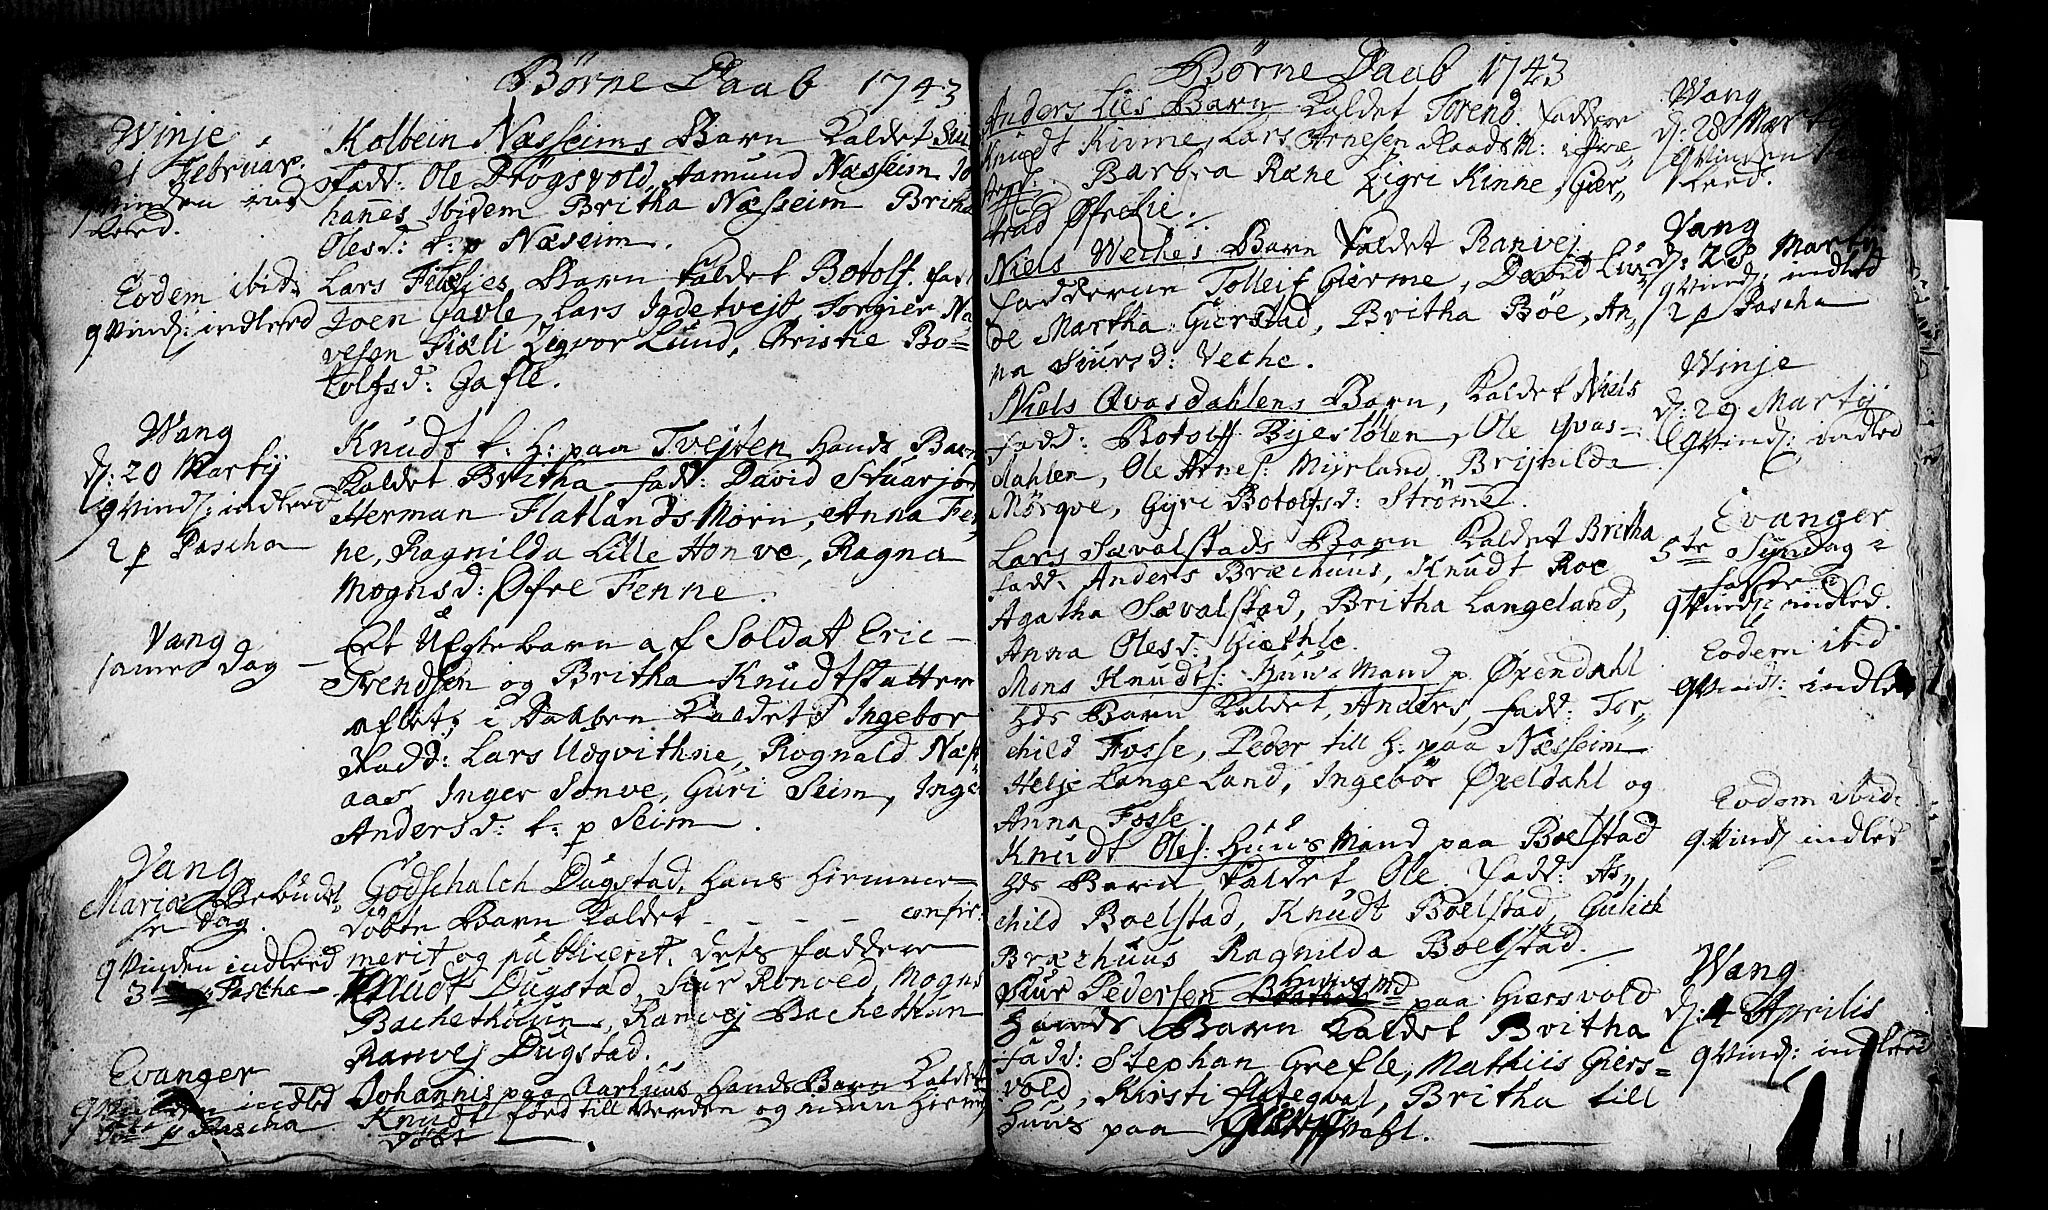 Börne Daab 1743
Winje
21 Februar.
qvinden ind
leed.
Kolbein Næsseims Barn Kaldet
fadd: Ole Drögsvold, Aamund Næsseim Jo
hannes Ibidem Britha Næsseim Britha
Olesd: t: p Næseim.
Eodem ibid:
qvind: indleed
Lars Barn kaldet Botolf. fad
Joen Gavle, Lars Igdetvejt, Torgier Na
vesen Fiæli Zigvor Lund, Christie Bo=
tolfsd: Gafle.
Wang
d: 20 Martij
qvind: indleed
2 p Pascha
Knudt t: h: paa Tvejten hands Barn
Kaldet Britha fadd: David
Herman Flatlands Morn, Anna Fen
ne, Ragnilda Lille Honve, Ragna
Mognsd: Øfre Fenne.
Vang
same dag
Et Uægtebarn af Soldat Eric
Trendsen og Britha Knudtsdatter
aflet, i Daaben Kaldet Ingebor
Fadd: Lars Ugqvithne, Rognald Næst=
aas Inger Sonve, Guri Seim, Inge
Andersd: t: p Seim.
Vang
Mariæ Bebudel
se Dag.
qvinden indleed
3 Pascha
Godschalch Dugstad, hans hiemme=
döbte Barn Kaldet - - - - confir:
merit og publicerit. Dets faddere
Knudt Dugstad, Siur Ronved, Mogns
Bachethuun, Ranvej Bachethun
Ranvej Dugstad.
Evanger
qvinden indled
p Pascha
Johannis paa Aarhuus hands Barn Kaldet
Knudt föed till Verden og hiemme
döbt
Börne Daab 1743
Anders Lies Barn Kaldet Torend. faddere
Knudt Kinne, Lars Arnesen Raads M: i
Barbra Ræne Zigri Kinne, Gier,
trud Øfrelie.
Wang
d: 28 Martij
qvinden
leed.
Niels Veches Barn kaldet Ranvej
Fadderne Tolleif Gierme, David
de Martha Gierstad, Britha Böe, An,
na Siursd: Veche.
Vang
d: 28 Martij
qvind: indled
2 p Pascha
Niels Qvasdahlens Barn, Kaldet Niels
fadd: Botolf Bjesiölen, Ole qvas=
dahlen, Ole Arnes: Myrland Brijnilda
Mörqve, Gyri Botolfsd: Ströme.
Winje
d: 29 Martij
qvind: indled
Lars Sævalstads Barn Kaldet Britha
fadd: Anders Bræchuus, Knudt Roe
Agatha Sævalstad, Britha Langeland,
Anna Olesd: Giethle.
Evanger
5te Syndag
faste
qvind: indled.
Mons Knudts: huus Mand p Øxendahl
hds Barn Kaldet, Anders, fadd: Tor,
child Fosse, Peder till h: paa Næsseim
Helje Lange Land, Ingebör Øxeldahl og
Anna Fosse.
Eodem ibid
qvind: indled
Knudt Oles: Huus Mand paa Boelstad
hds Barn, kaldet Ole. Fadd: As,
child Boelstad, Knudt Boelstad, Gulick
Bræchuus Ragnilda Boelstad.
Eodem ibid:
qvind: indled
Siur Pedersen huusmd paa Giersvold
hands Barn Kaldet Britha
fadd: Stephan Grefle, Mathiis Giers=
vold, Kirsti flategval, Britha till
huus paa
Wang
d: 4 Aprilis
qvind: indleed
11